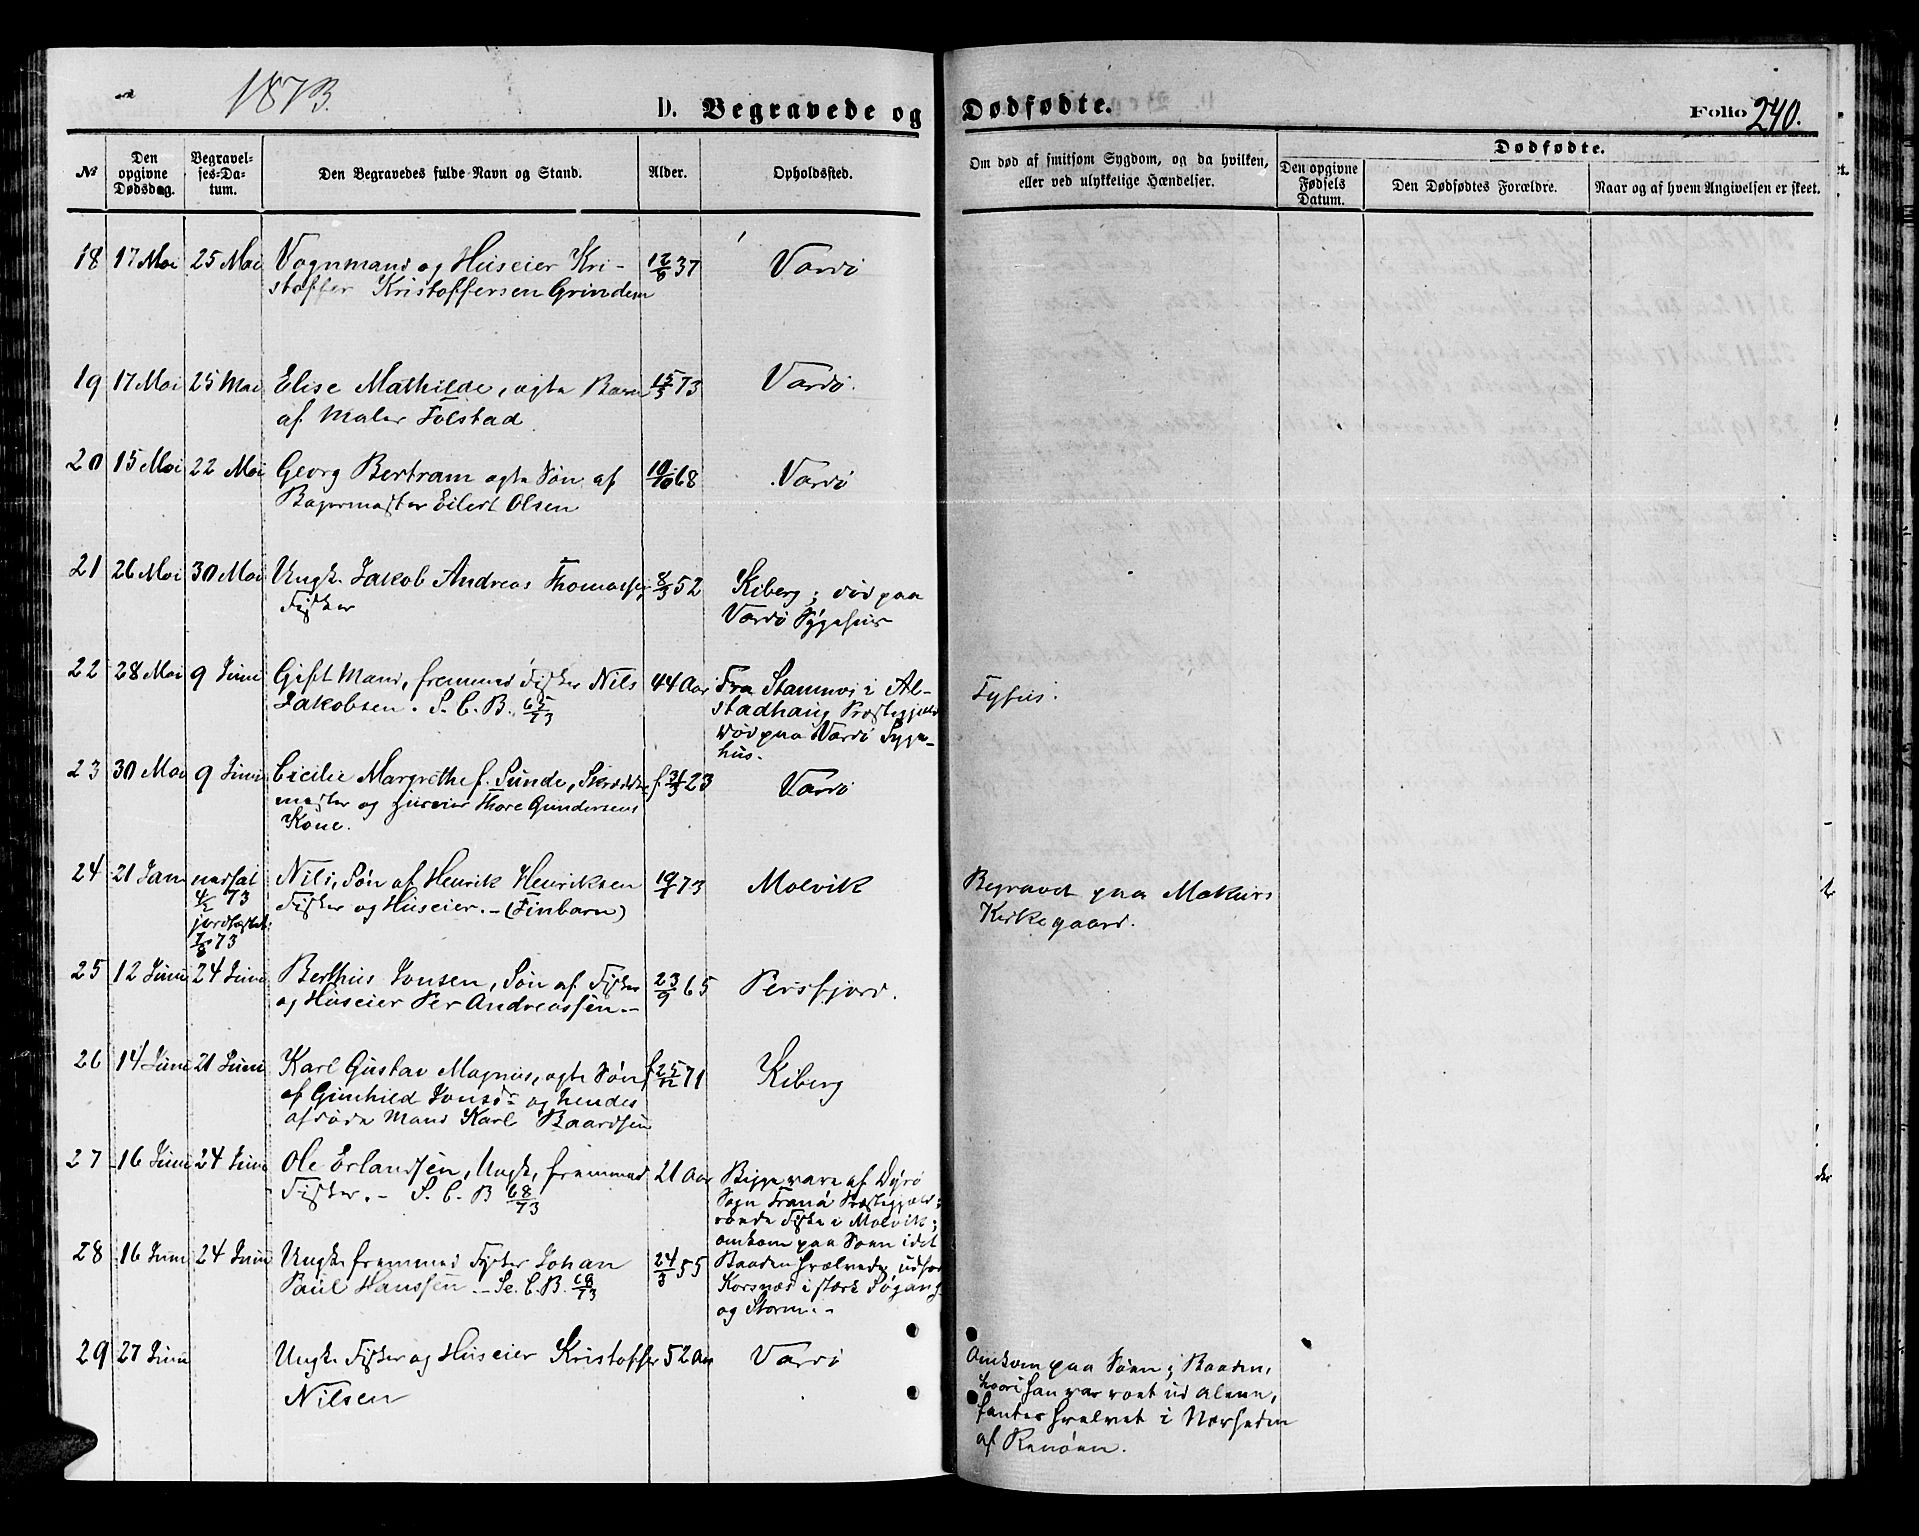 1873.
D. Begravede og Dødfødte.
Folio 240.
No
Den opgivne Dødsdag.
Begravelses-Datum.
Den Begravedes fulde Navn og Stand.
Alder.
Opholdssted.
Om død af smitsom Sygdom, og da hvilken, eller ved ulykkelige Hændelser.
Dødfødte.
Den opgivne Fødsels Datum.
Den Dødfødtes Forældre.
Naar og af hvem Angivelsen er skeet.
18 17 Mai 25 Mai Vognmand og Huseier Kri-
stoffer Kristoffersen Grindem
12/8 37 Vardö
19 17 Mai 25 Mai Elise Mathilde, ægte Barn
af Maler Tolstad
15/3 73 Vardö.
20 15 Mai 22 Mai Georg Bertram ægte Søn af
Bagermester Eilert Olsen
10/10 68 Vardö
21 26 Mai 30 Mai Ungk. Jakob Andreas Thomassen,
Fisker
8/3 52 Kiberg; död paa
Vardö Sygehus
22 28 Mai 9 Juni Gift Mand, fremmed Fisker Nils
Jakobsen. S. C. B. 65/73
44 Aar Fra Stamnes i Al-
stadhaug Præstegjeld
död paa Vardö Syge-
hus.
Tyfus.
23 30 Mai 9 Juni Cicilie Margrethe f. Sunde, Skrædder
mester og Huseier Thore Gundersens
Kone.
f. 31/3 23 Vardö
24 21 Jan nedsat
4/2 73
jordfæstet
7/8 73
Nils, Søn af Henrik Henriksen
Fisker og Huseier. - (Finbarn)
19/1 73 Molvik
Begravet paa Makurs
Kirkegaard.
25 12 Juni 24 Juni Berthus Jonsen, Søn af Fisker
og Huseier Per Andreassen. -
23/9 65 Persfjord.
26 14 Juni 21 Juni Karl Gustav Magnus, ægte Søn
af Gunhild Jonsdr og hendes
afdöde Mand Karl Baardsen
f 25/12 71 Kiberg
27 16 Juni 24 Juni Ole Erlandsen, Ungk, fremmed
Fisker. - S. C. B 68/73
21 Aar
Begge vare af Dyrö
Sogn Tranö Præstegjæld;
roede Fiske i Molvik;
omkom paa Søen idet
Baaden hvælvede udfor
Korsnæs i stærk Søgang
og Storm. -
28 16 Juni 24 Juni Ungk fremmed Fisker Johan
Paul Hanssen. - Se. C. B. 69/73
24/3 55
29 27 Juni Ungk Fisker og Huseier Kristoffer
Nilsen
52 Aar Vardö
Omkom paa Søen; Baaden,
hvori han var roet ud alene,
fantes hvelvet i Nærheden
af Renöen.